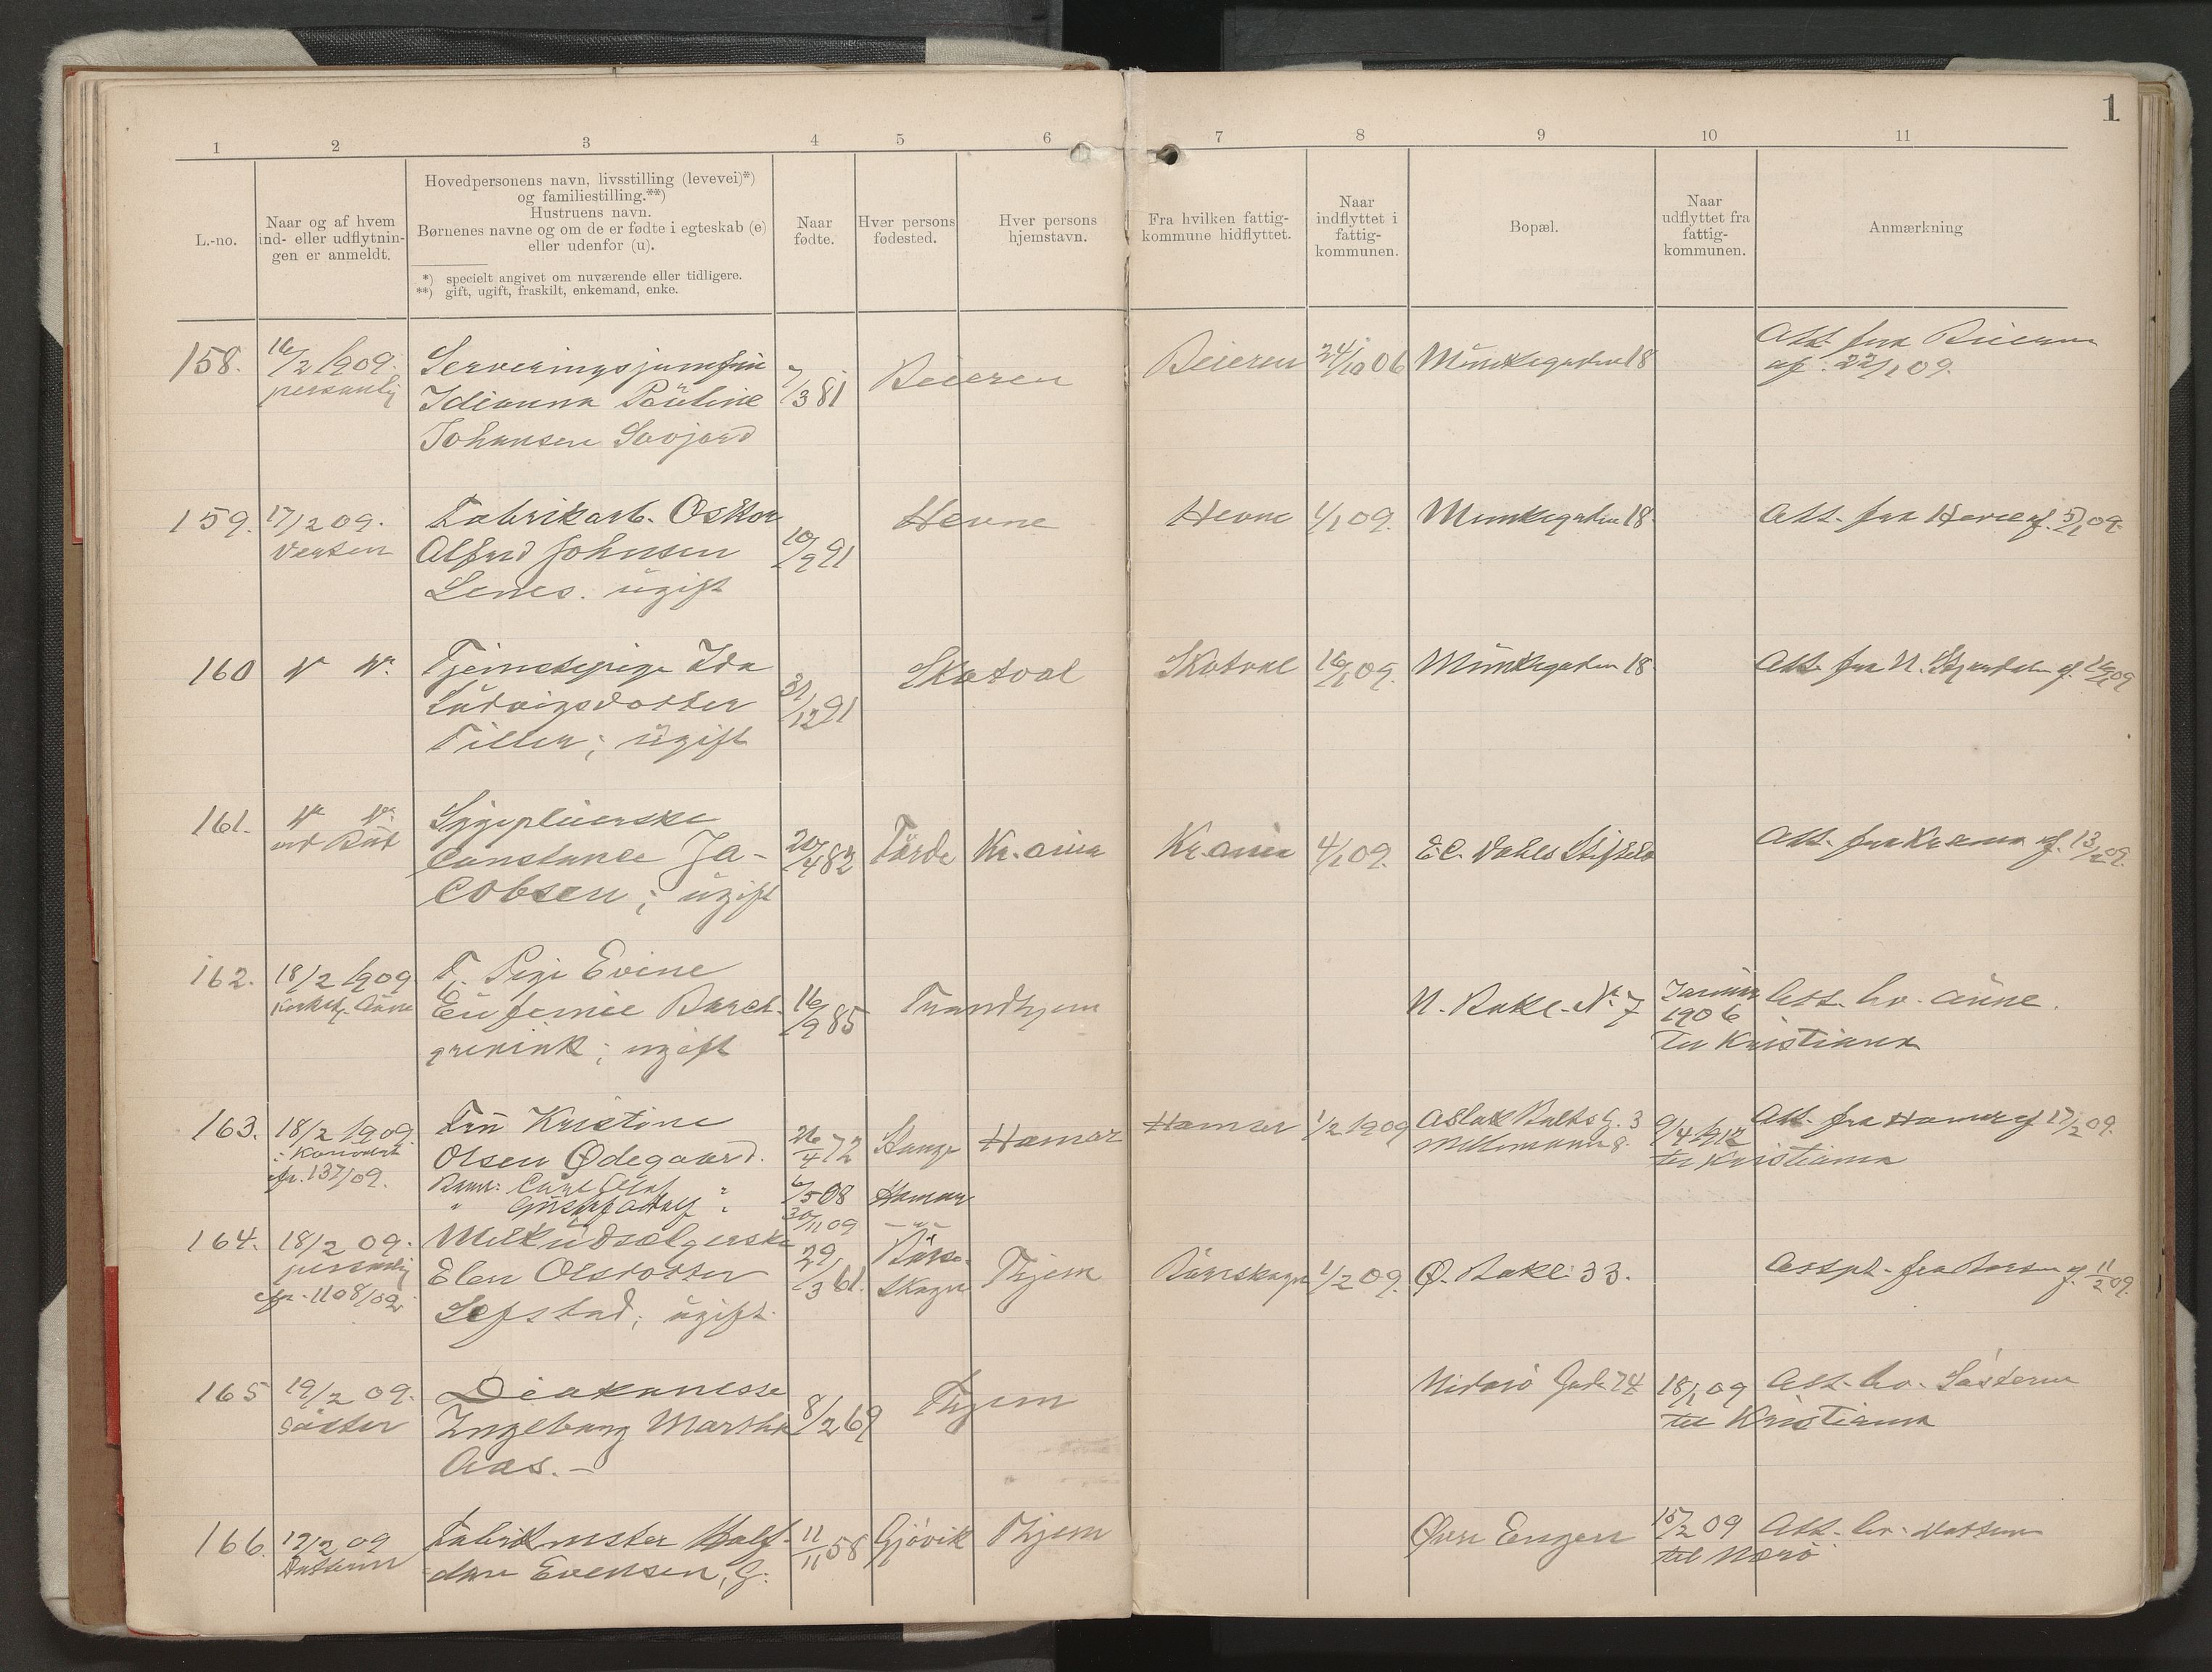 1
1 2 3 4 5 6 7 8 9 10 11
L.-no.
Naar og af hvem
ind- eller udflytnin-
gen er anmeldt.
Hovedpersonens navn, livsstilling (levevei)*)
og familiestilling.**)
Hustruens navn.
Børnenes navne og om de er fødte i egteskab (e)
eller udenfor (u).
*) specielt angivet om nuværende eller tidligere.
**) gift, ugift, fraskilt, enkemand, enke.
Naar
fødte.
Hver persons
fødested.
Hver persons
hjemstavn.
Fra hvilken fattig-
kommune hidflyttet.
Naar
indflyttet i
fattig-
kommunen.
Bopæl.
Naar
udflyttet fra
fattig-
kommunen.
Anmærkning
158.
16/2 1909.
personlig
Serveringsjomfru
Idianna Pauline
Johansen Savjord
7/3 81
Beieren
Beieren
24/10 06
Munkegaden 18
Att. fra Beieren
af 22/1 09.
159.
17/2 09.
Verten
Fabrikarb. Oskar
Alfred Johnsen
ugift
10/9 91
Hevne
Hevne
1/1 09.
Munkegaden 18.
Att. fra Hevne af 5/1 09.
160
Tjenestepige Ida
Ludvigsdotter
Tiller; ugift
31/12 91
Skatval
Skatval
16/1 09.
Munkegaden 18.
Att. fra N. Stjørdalen af
161.
ved Bud
Sygepleierske
Constance Ja-
cobsen; ugift
20/4 82
Förde
Kr.ania
Kr.ania
4/1 09.
E.C. Dahls Stiftelse
Att. fra Kr.ania af 13/2 09.
162.
18/2 1909
Evine
Eufemie
ugift
16/9 85
Trondhjem
N. Bakl. No 7
Januar
1906
til Kristiania
Att. hos Aune.
163.
18/2 1909.
Konvolut
cfr. 137/09.
Fru Kristine
Olsen Ødegaard.
Barn: Carl Olaf
" Gustaf Adolf
26/4 72
6/5 08
30/11 09
Stange
Hamar
— " —
Hamar
Hamar
1/2 1909
Aslak Bolts G. 3
9/4 1912
til Kristiania
Att. fra Hamar af 17/2 09.
164.
18/2 09.
personlig
cfr. 1108/09
Melkudsælgerske
Elen Olsdotter
ugift.
29/3 61.
Börse-
skagn
Thjem
Börseskagn
1/2 09.
Ø. Bakl. 33.
fra Börsen af 11/2 09.
165
19/2 09.
söster
Diakonesse
Ingeborg Martha
Aas. —
8/2 69
Thjem
Nidarö Gade 74
18/1 09
til Kristiania
Att. hos Söstern
166.
19/2 09
Datteren
Fabrikmester Half-
dan Evensen, G.
11/11 58
Gjövik
Thjem
Övre Engen
15/2 09
til Nærö
Att. hos datteren